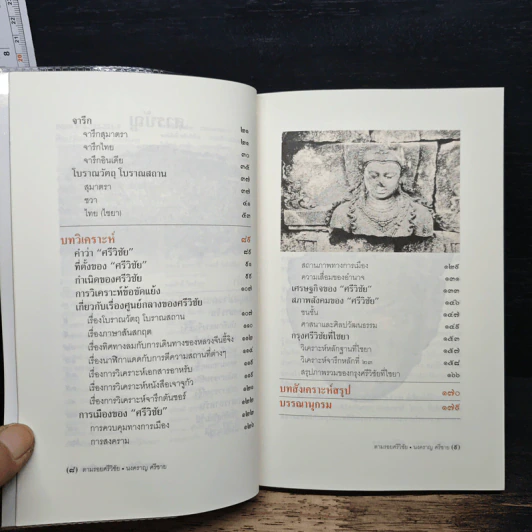 จารึก ๒๑
จารึกสุมาตรา ๒๑
จารึกไทย ๓๐
จารึกอินเดีย ๓๕
โบราณวัตถุ โบราณสถาน ๓๗
สุมาตรา ๓๗
ชวา ๔๑
ไทย (ไชยา) ๕๓
บทวิเคราะห์ ๘๕
คำว่า “ศรีวิชัย” ๘๕
ที่ตั้งของ “ศรีวิชัย”
กำเนิดของ “ศรีวิชัย”
การวิเคราะห์ข้อขัดแย้ง
เกี่ยวกับเรื่องศูนย์กลางของศรีวิชัย ๑๐๗
เรื่องโบราณวัตถุ โบราณสถาน ๑๐๗
เรื่องภาษาสันสกฤต ๑๑๐
เรื่องทิศทางลมกับการเดินทางของหลวงจีนอี้จิง
เรื่องนาฬิกาแดดกับการตีความสถานที่ต่างๆ
เรื่องการวิเคราะห์เอกสารอาหรับ
เรื่องการวิเคราะห์หนังสือเจาจูกัว
เรื่องการวิเคราะห์จารึกตันชอร์
การเมืองของ “ศรีวิชัย” ๑๒๒
การควบคุมทางการเมือง ๑๒๒
การสงคราม
(๘) ตามรอยศรีวิชัย • นงคราญ ศรีชาย
สถานภาพทางการเมือง ๑๒๙
ความเสื่อมของอำนาจ ๑๓๑
เศรษฐกิจของ “ศรีวิชัย” ๑๓๓
สภาพสังคมของ “ศรีวิชัย” ๑๔๖
ชนชั้น ๑๔๗
ศาสนาและศิลปวัฒนธรรม ๑๔๙
กรุงศรีวิชัยที่ไชยา ๑๕๗
วิเคราะห์หลักฐานที่ไชยา ๑๕๗
วิเคราะห์จารึกหลักที่ ๒๓ ๑๕๘
สรุปภาพรวมของกรุงศรีวิชัยที่ไชยา ๑๖๖
บทสังเคราะห์สรุป ๑๗๐
บรรณานุกรม ๑๗๕
ตามรอยศรีวิชัย • นงคราญ ศรีชาย (๙)